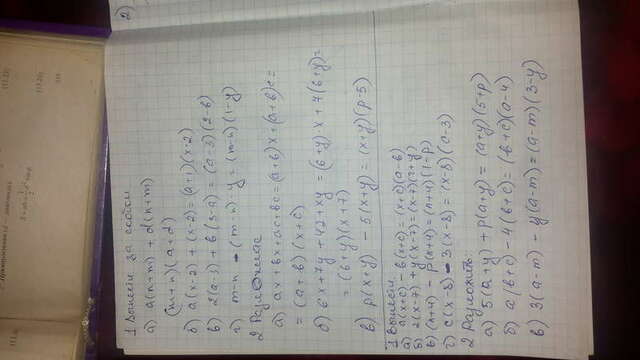 2)
1 Вынеси за скобки
а) a(n+m) + d(n+m)
(m+n)(a+d)
б) a(x-2) + (x-2) = (a+1)(x-2)
в) 2(a-3) + b(3-a) = (a-3)(2-b)
г) m-n - (m-n)·y = (m-n)(1-y)
2 Разложить
а) ax+bx+ac+bc = (a+b)x + (a+b)c =
= (a+b)(x+c)
б) 6x+7y+42+xy = (6+y)·x + 7(6+y) =
= (6+y)(x+7)
в) p(x+y) - 5(x+y) = (x+y)(p-5)
а) a(x+c) - b(x+c) = (x+c)(a-b)
б) 2(x-7) + y(x-7) = (x-7)(2+y)
в) (n+4) - p(n+4) = (n+4)(1-p)
г) c(x-8) - 3(x-8) = (x-8)(c-3)
2 Разложить
а) 5(a+y) + p(a+y) = (a+y)(5+p)
б) a(b+c) - 4(b+c) = (b+c)(a-4)
в) 3(a-m) - y(a-m) = (a-m)(3-y)